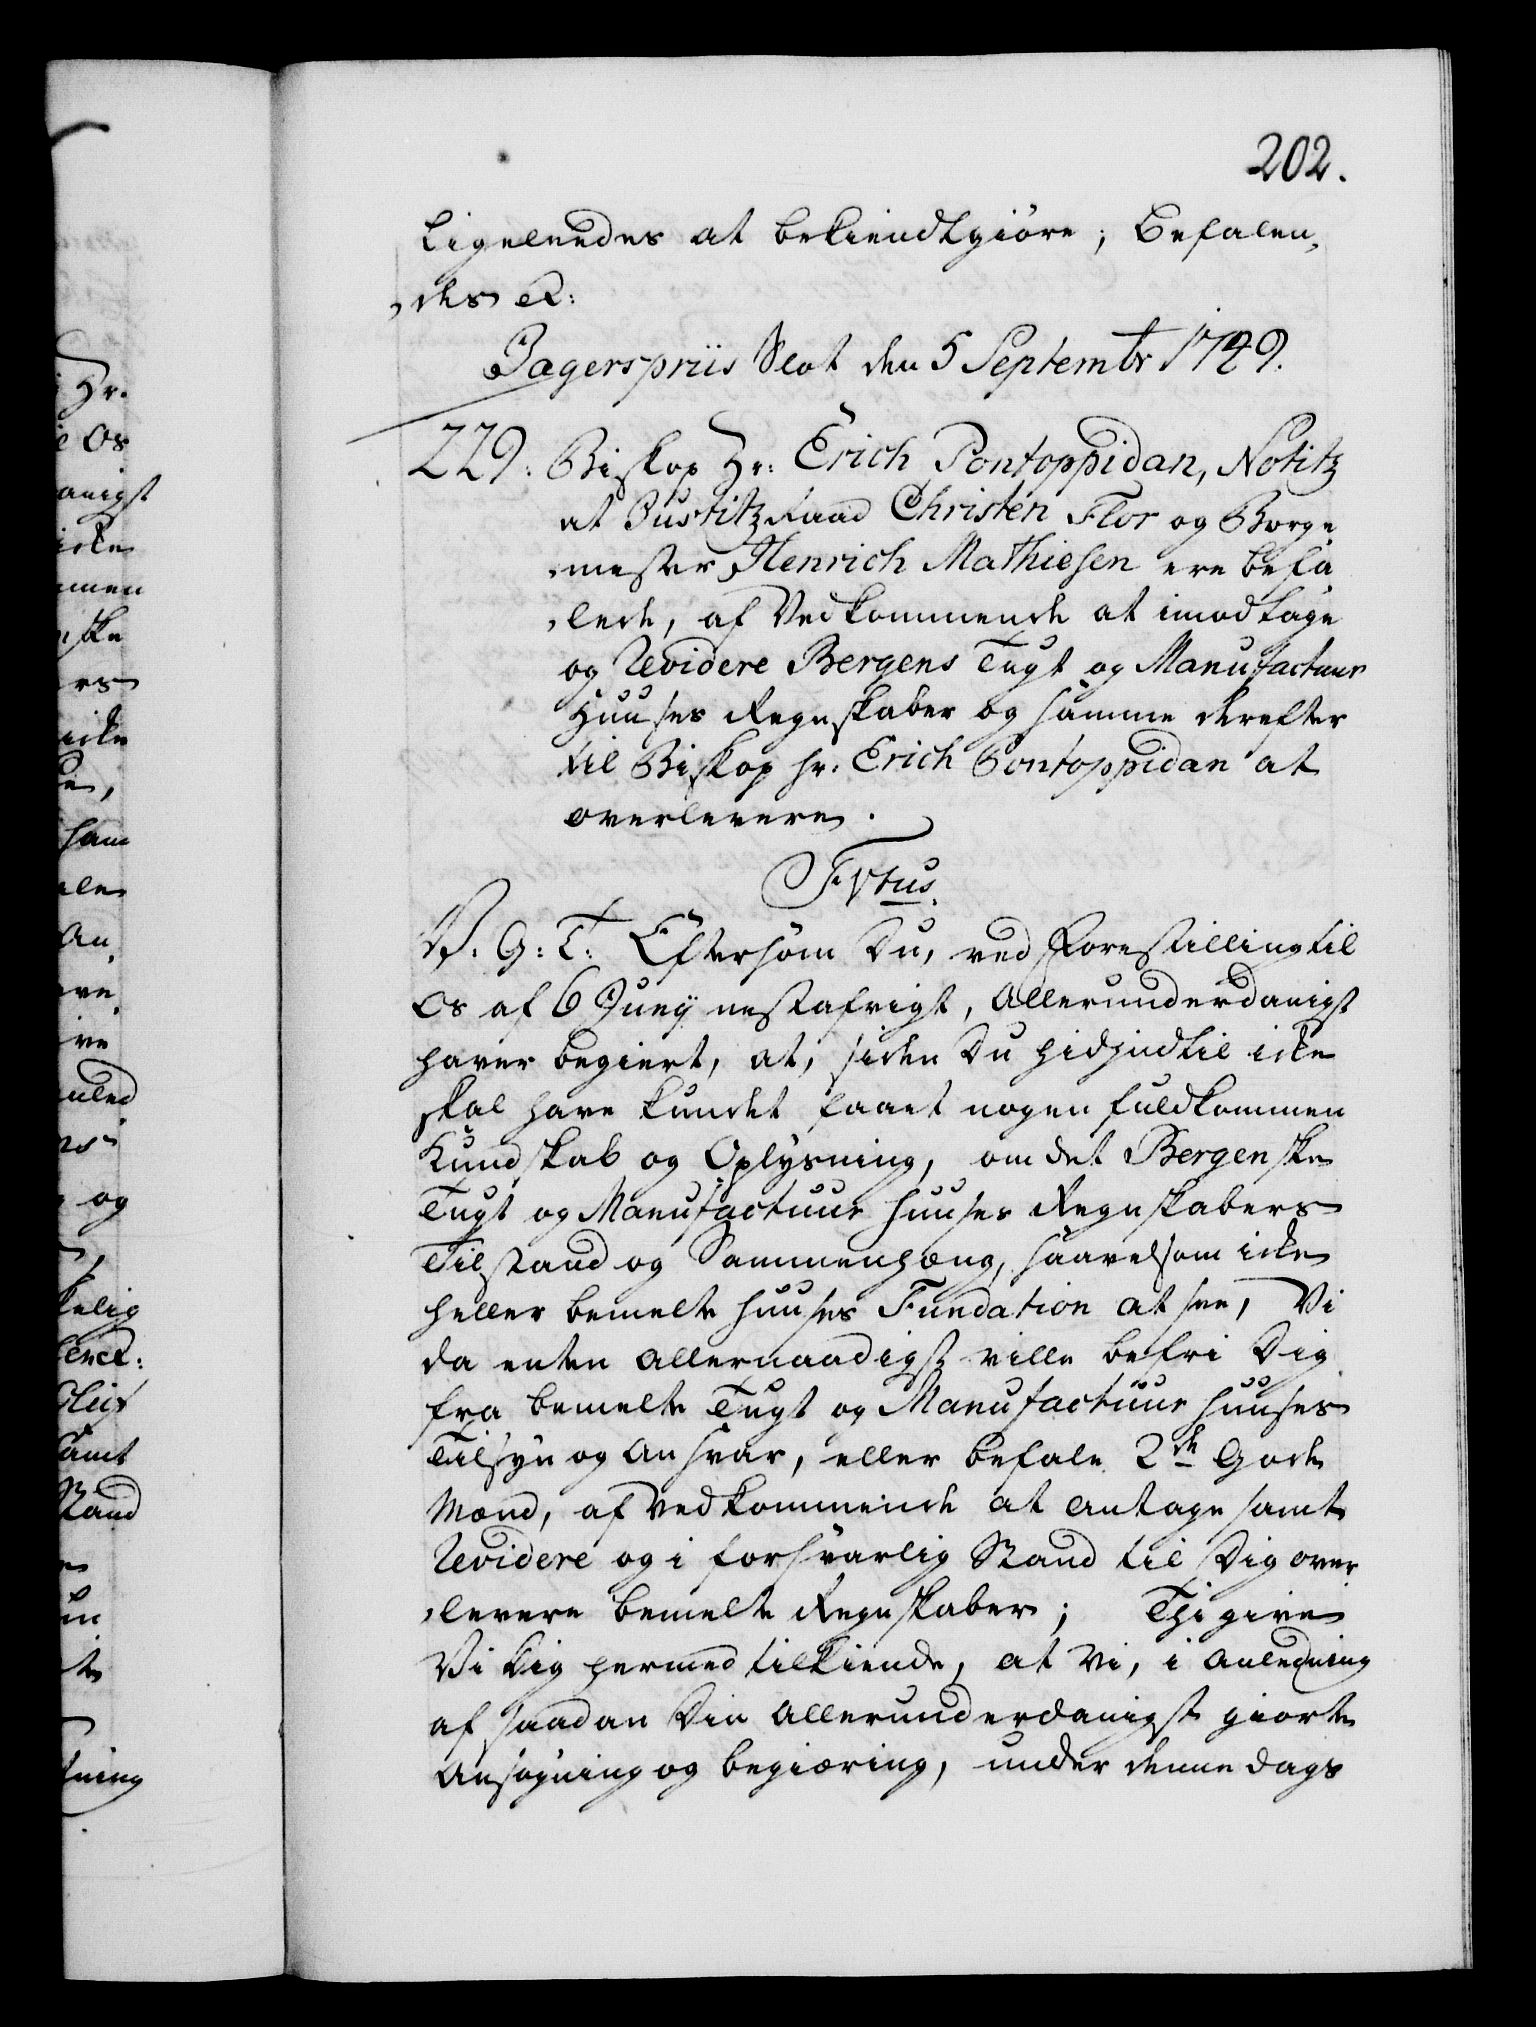 202.
Ligeledes at bekiendtgiöre; Befalen,
,des etc:
Jagerspriis Slot den 5 Septembr 1749.
229: Biskop Hr: Erich Pontoppidan, Notitz
at Justitz Raad Christen Flor og Borge
,mester Henrich Mathiesen ere befa
,lede, af Vedkommende at imodtage
og Revidere Bergens Tugt og Manufactuur
Huuses Regnskaber og samme derefter
til Biskop hr: Erich Pontoppidan at
overlevere.
F Vtus.
V. G: T: Eftersom Du, ved Forestilling til
Os af 6 Junij nestafvigt, Allerunderdanigst
haver begiert, at, siden Du hidindtil icke
skal have kundet faaet nogen fuldkommen
Kundskab og Oplysning, om det Bergenske
Tugt og Manufactuur Huuses Regnskabers
Tilstand og Sammenhæng, saavelsom icke
heller bemelte Huuses Fundation at see, Vi
da enten Allernaadigst ville befri Dig
fra bemelte Tugt og Manufactuur Huuses
Tilsyn og Ansvar, eller befale 2de Gode
Mænd, af Vedkommende at antage samt
Revidere og i forsvarlig Stand til Dig over
,levere bemelte Regnskaber; Thi give
Vi Dig hermed tilkiende, at Vi, i Anledning
af saadan Din Allerunderdanigst giorte
Ansøgning og begiæring, under denne Dags